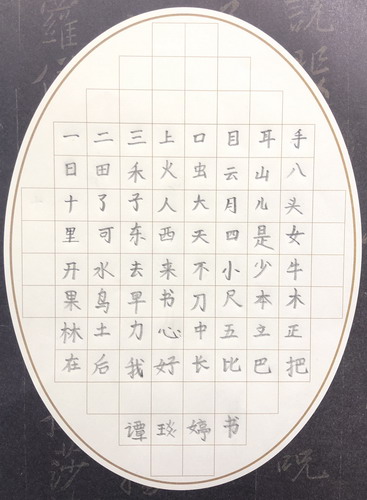 一二三上口目耳手
日田禾火虫云山八
十了子人大月儿头
里可东西天四是女
开水去来不小少牛
果鸟早书刀尺本木
林土力心中五立正
在后我好长比巴把
谭琰婷书